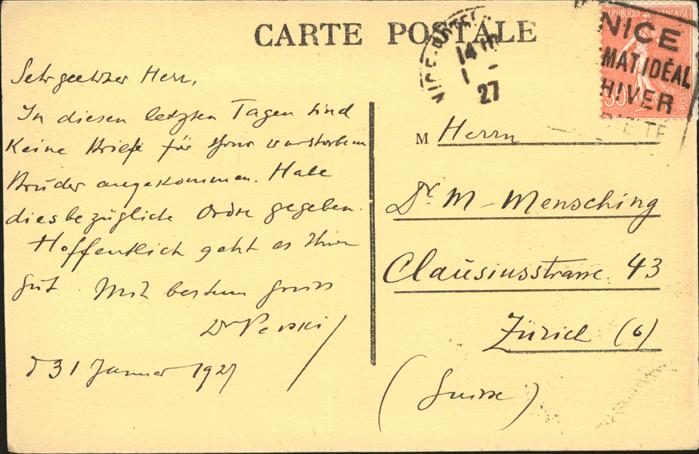 CARTE POSTALE
NICE
14
1 -
27
NICE
MAT IDÉAL
HIVER
Sehr geehrter Herr,
In diesen letzten Tagen sind
keine Briefe für Ihren verstorbenen
Bruder angekommen. Habe
diesbezügliche Ordre gegeben.
Hoffentlich geht es Ihnen
gut. Mit bestem Gruss
Dr
d 31 Januar 1927
M Herrn
Dr. M - Mensching
Clausiusstrasse 43
Zürich (6)
(Suisse)